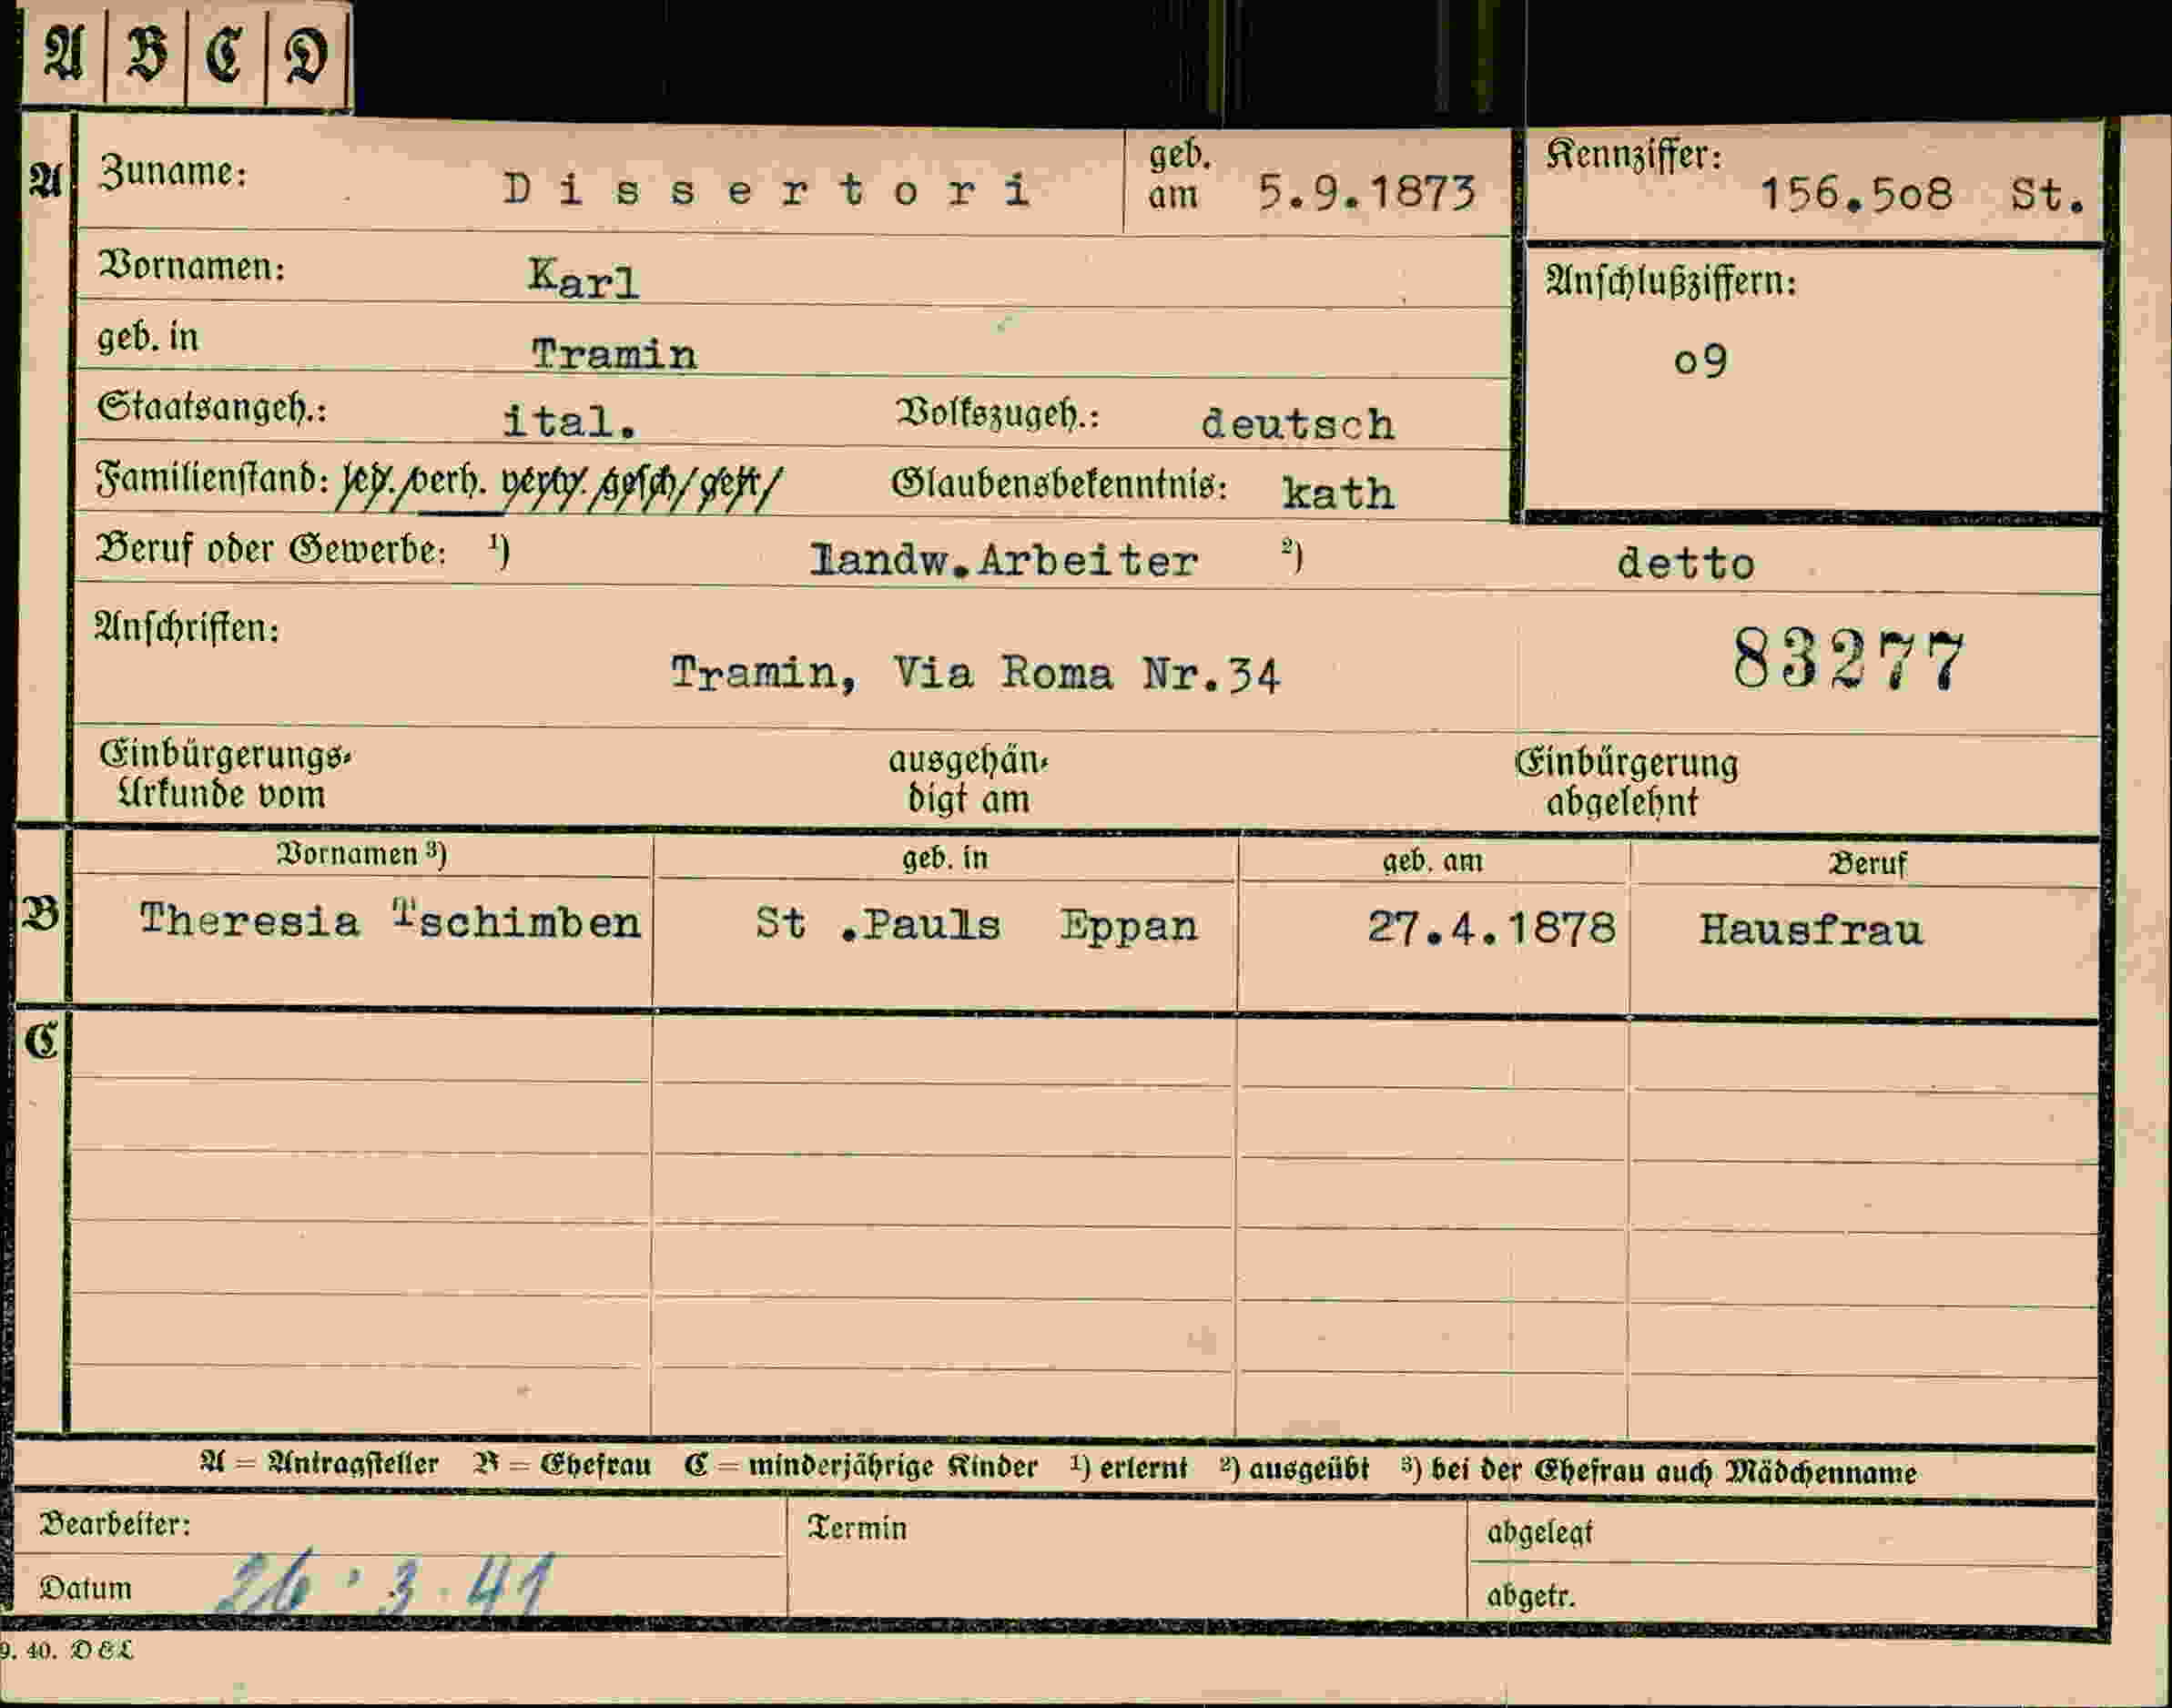 A B C D
A Zuname: Dissertori geb. am 5.9.1873 Kennziffer: 156.5o8 St.
Vornamen: Karl Anschlußziffern:
geb. in Tramin o9
Staatsangeh.: ital. Volkszugeh.: deutsch
Familienstand: led. verh. verw. gesch. getr. Glaubensbekenntnis: kath
Beruf oder Gewerbe: ¹) landw.Arbeiter ²) detto
Anschriften: 83277
Tramin, Via Roma Nr.34
Einbürgerungs- ausgehän- Einbürgerung
Urkunde vom digt am abgelehnt
Vornamen ³) geb. in geb. am Beruf
B Theresia Tschimben St .Pauls Eppan 27.4.1878 Hausfrau
C
A = Antragsteller B = Ehefrau C = minderjährige Kinder ¹) erlernt ²) ausgeübt ³) bei der Ehefrau auch Mädchenname
Bearbeiter: Termin abgelegt
Datum 26.3.41 abgetr.
9. 40. D & L